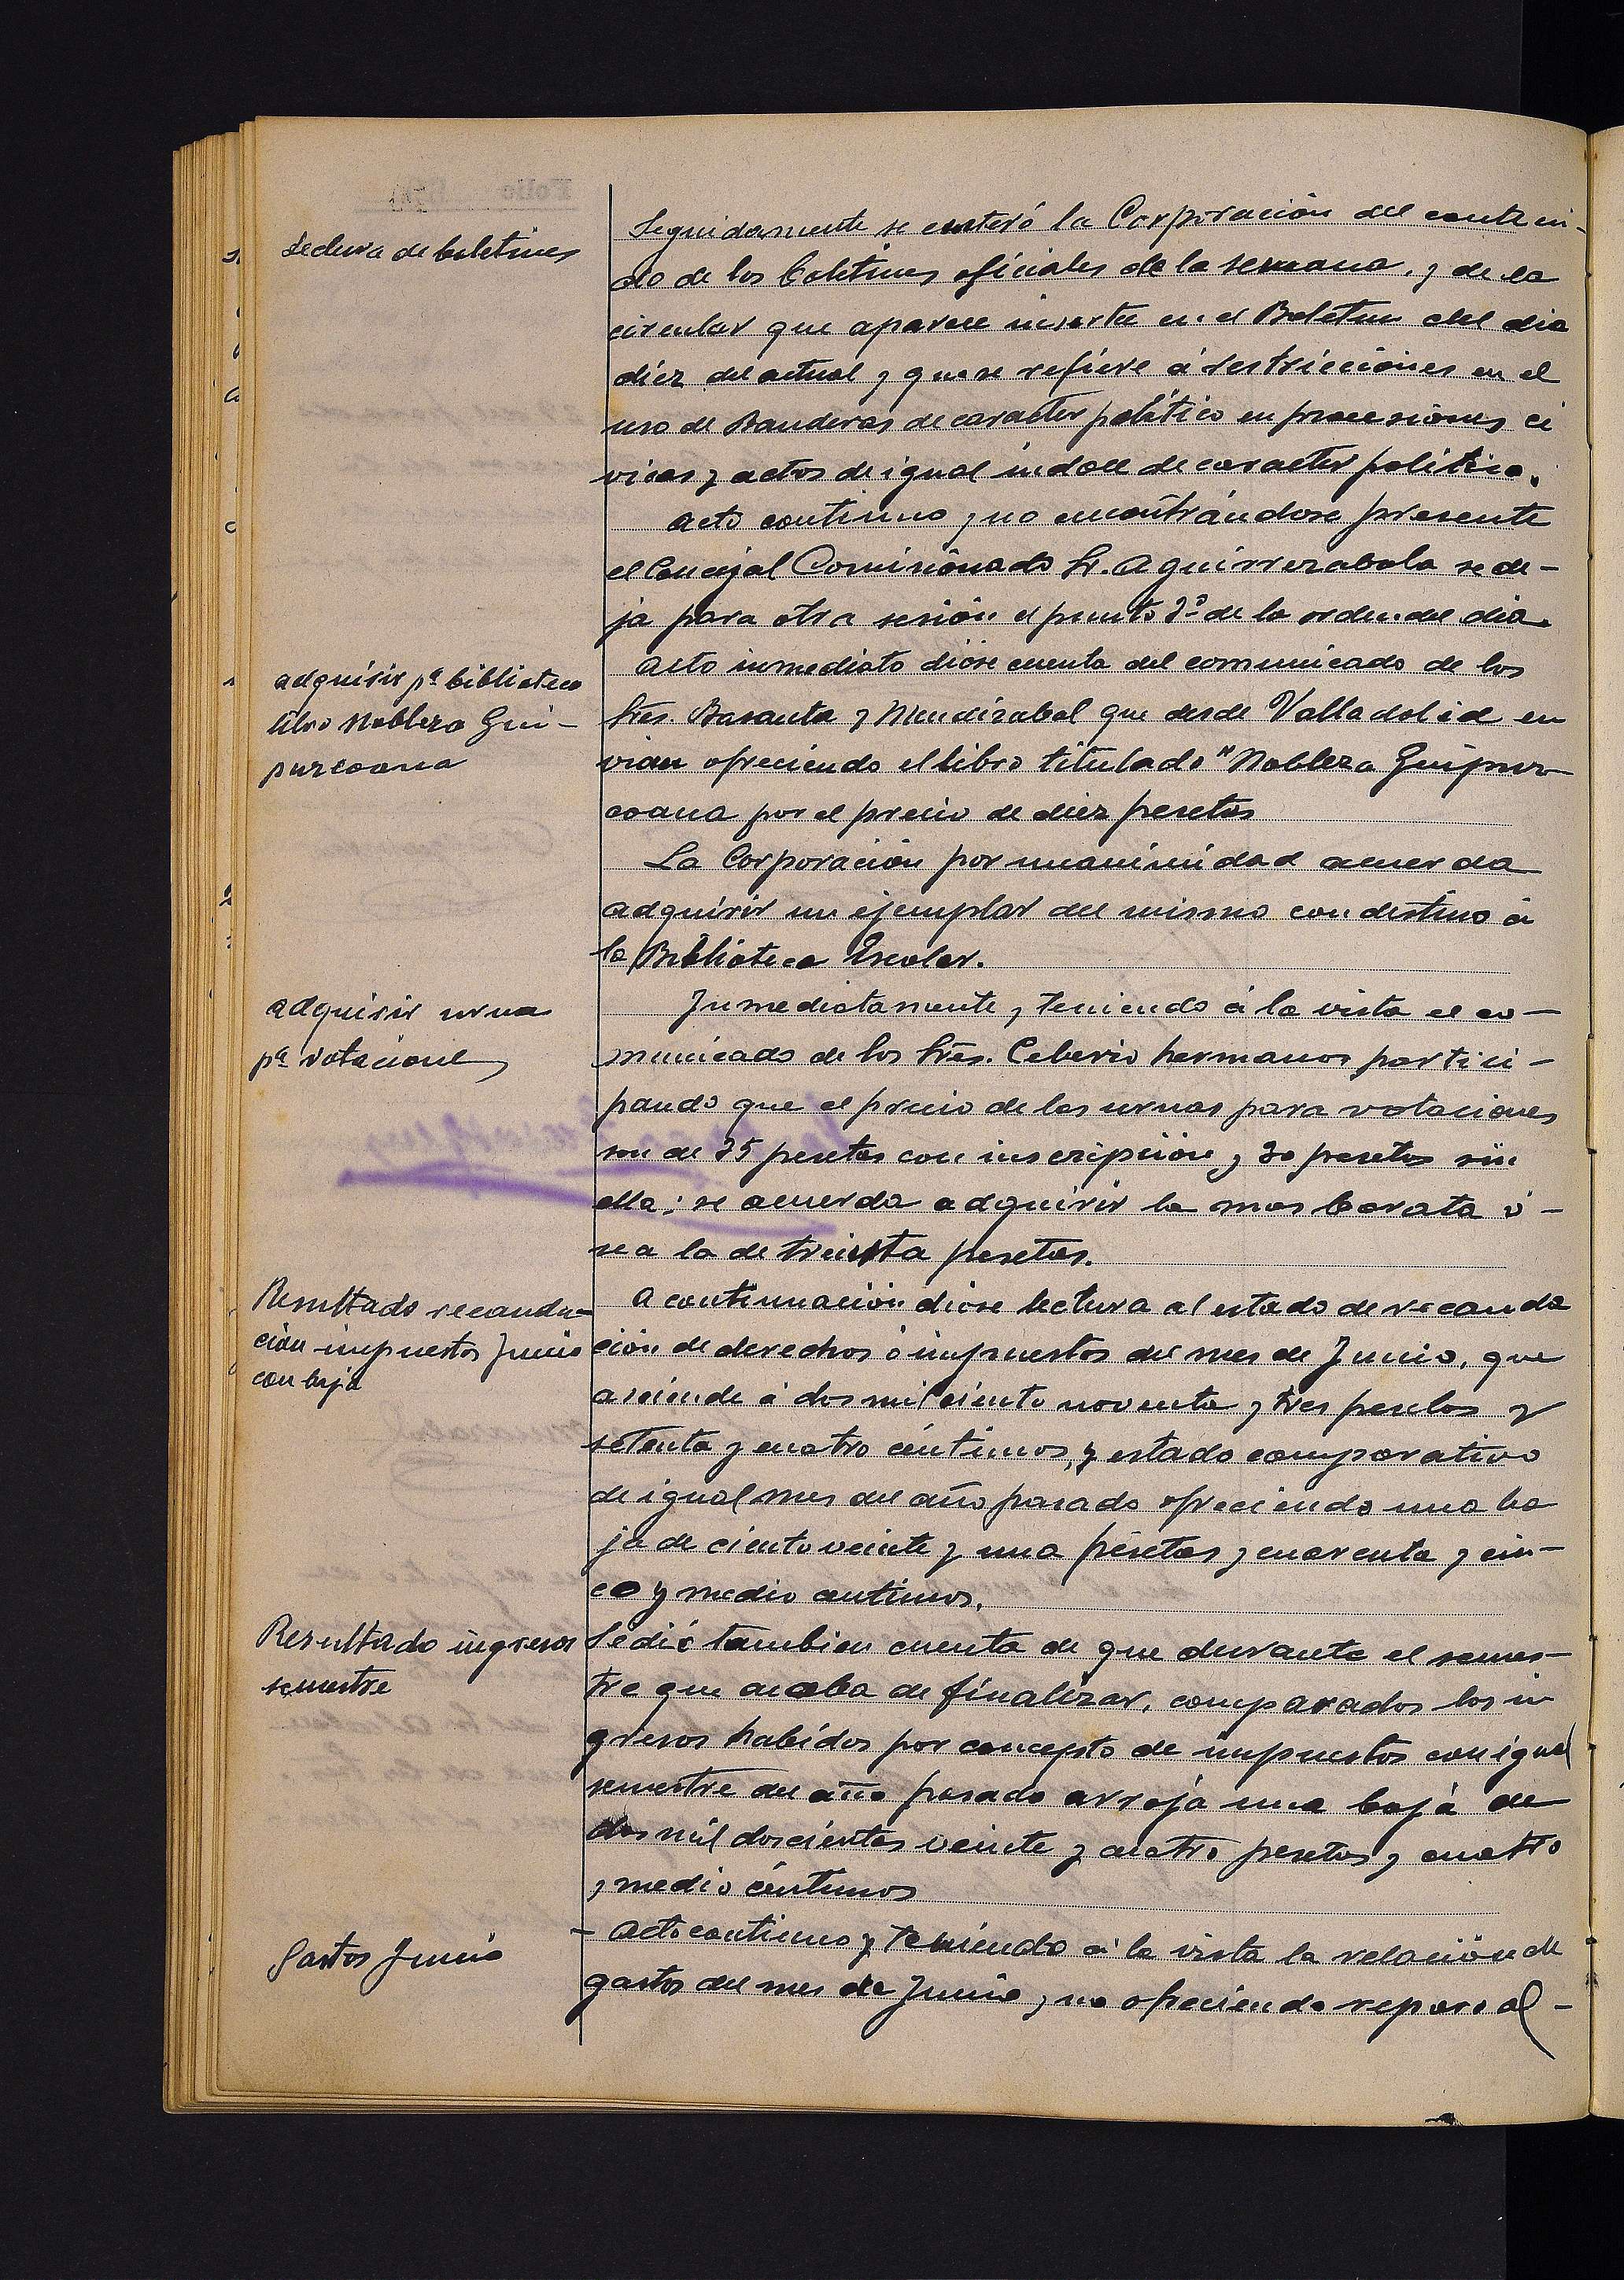 Lectura de boletines
Seguidamente se enteró la Corporación del conteni-
do de los boletines oficiales de la semana, y de la
circular que aparece inserta en el Boletin del dia
diez del actual y que se refiere á restricciones en el
uso de Banderas de caracter politico en procesiones ci
vicas y actos de igual indole de caracter politico.
Acto continuo y no encontrándose presente
el Concejal Comisionado Sr. Aguirrezabala se de-
ja para otra sesión el punto 3º de la orden del dia.
adquirir pª biblioteca
libro Nobleza Gui-
puzcoana
Acto inmediato dióse cuenta del comunicado de los
Sres. Basanta y Mendizabal que desde Valladolid en
vian ofreciendo el libro titulado "Nobleza Guipuz
coana por el precio de diez pesetas
La Corporación por unanimidad acuerda
adquirir un ejemplar del mismo con destino á
la Biblioteca Escolar.
adquirir urna
pª votaciones
Inmediatamente y teniendo á la vista el co-
municado de los Sres. Ceberio hermanos partici-
pando que el precio de las urnas para votaciones
son de 35 pesetas con inscripción y 30 pesetas sin
ella; se acuerda adquirir la mas barata ó-
sea la de treinta pesetas.
Resultado recauda-
ción impuestos Junio
con baja
A continuación dióse lectura al estado de recauda
ción de derechos é impuestos del mes de Junio, que
asciende á dos mil ciento noventa y tres pesetas y
setenta y cuatro céntimos, y estado comparativo
de igual mes del año pasado ofreciendo una ba
ja de ciento veinte y una pesetas y cuarenta y cin-
co y medio centimos.
Resultado ingresos
semestre
Se dió tambien cuenta de que durante el semes-
tre que acaba de finalizar, comparados los in
gresos habidos por concepto de impuestos con igual
semestre del año pasado arroja una baja de
dos mil doscientas veinte y cuatro pesetas y cuatro
y medio céntimos
Gastos Junio
- Acto continuo y teniendo á la vista la relación de
gastos del mes de Junio, y no ofreciendo reparo al-